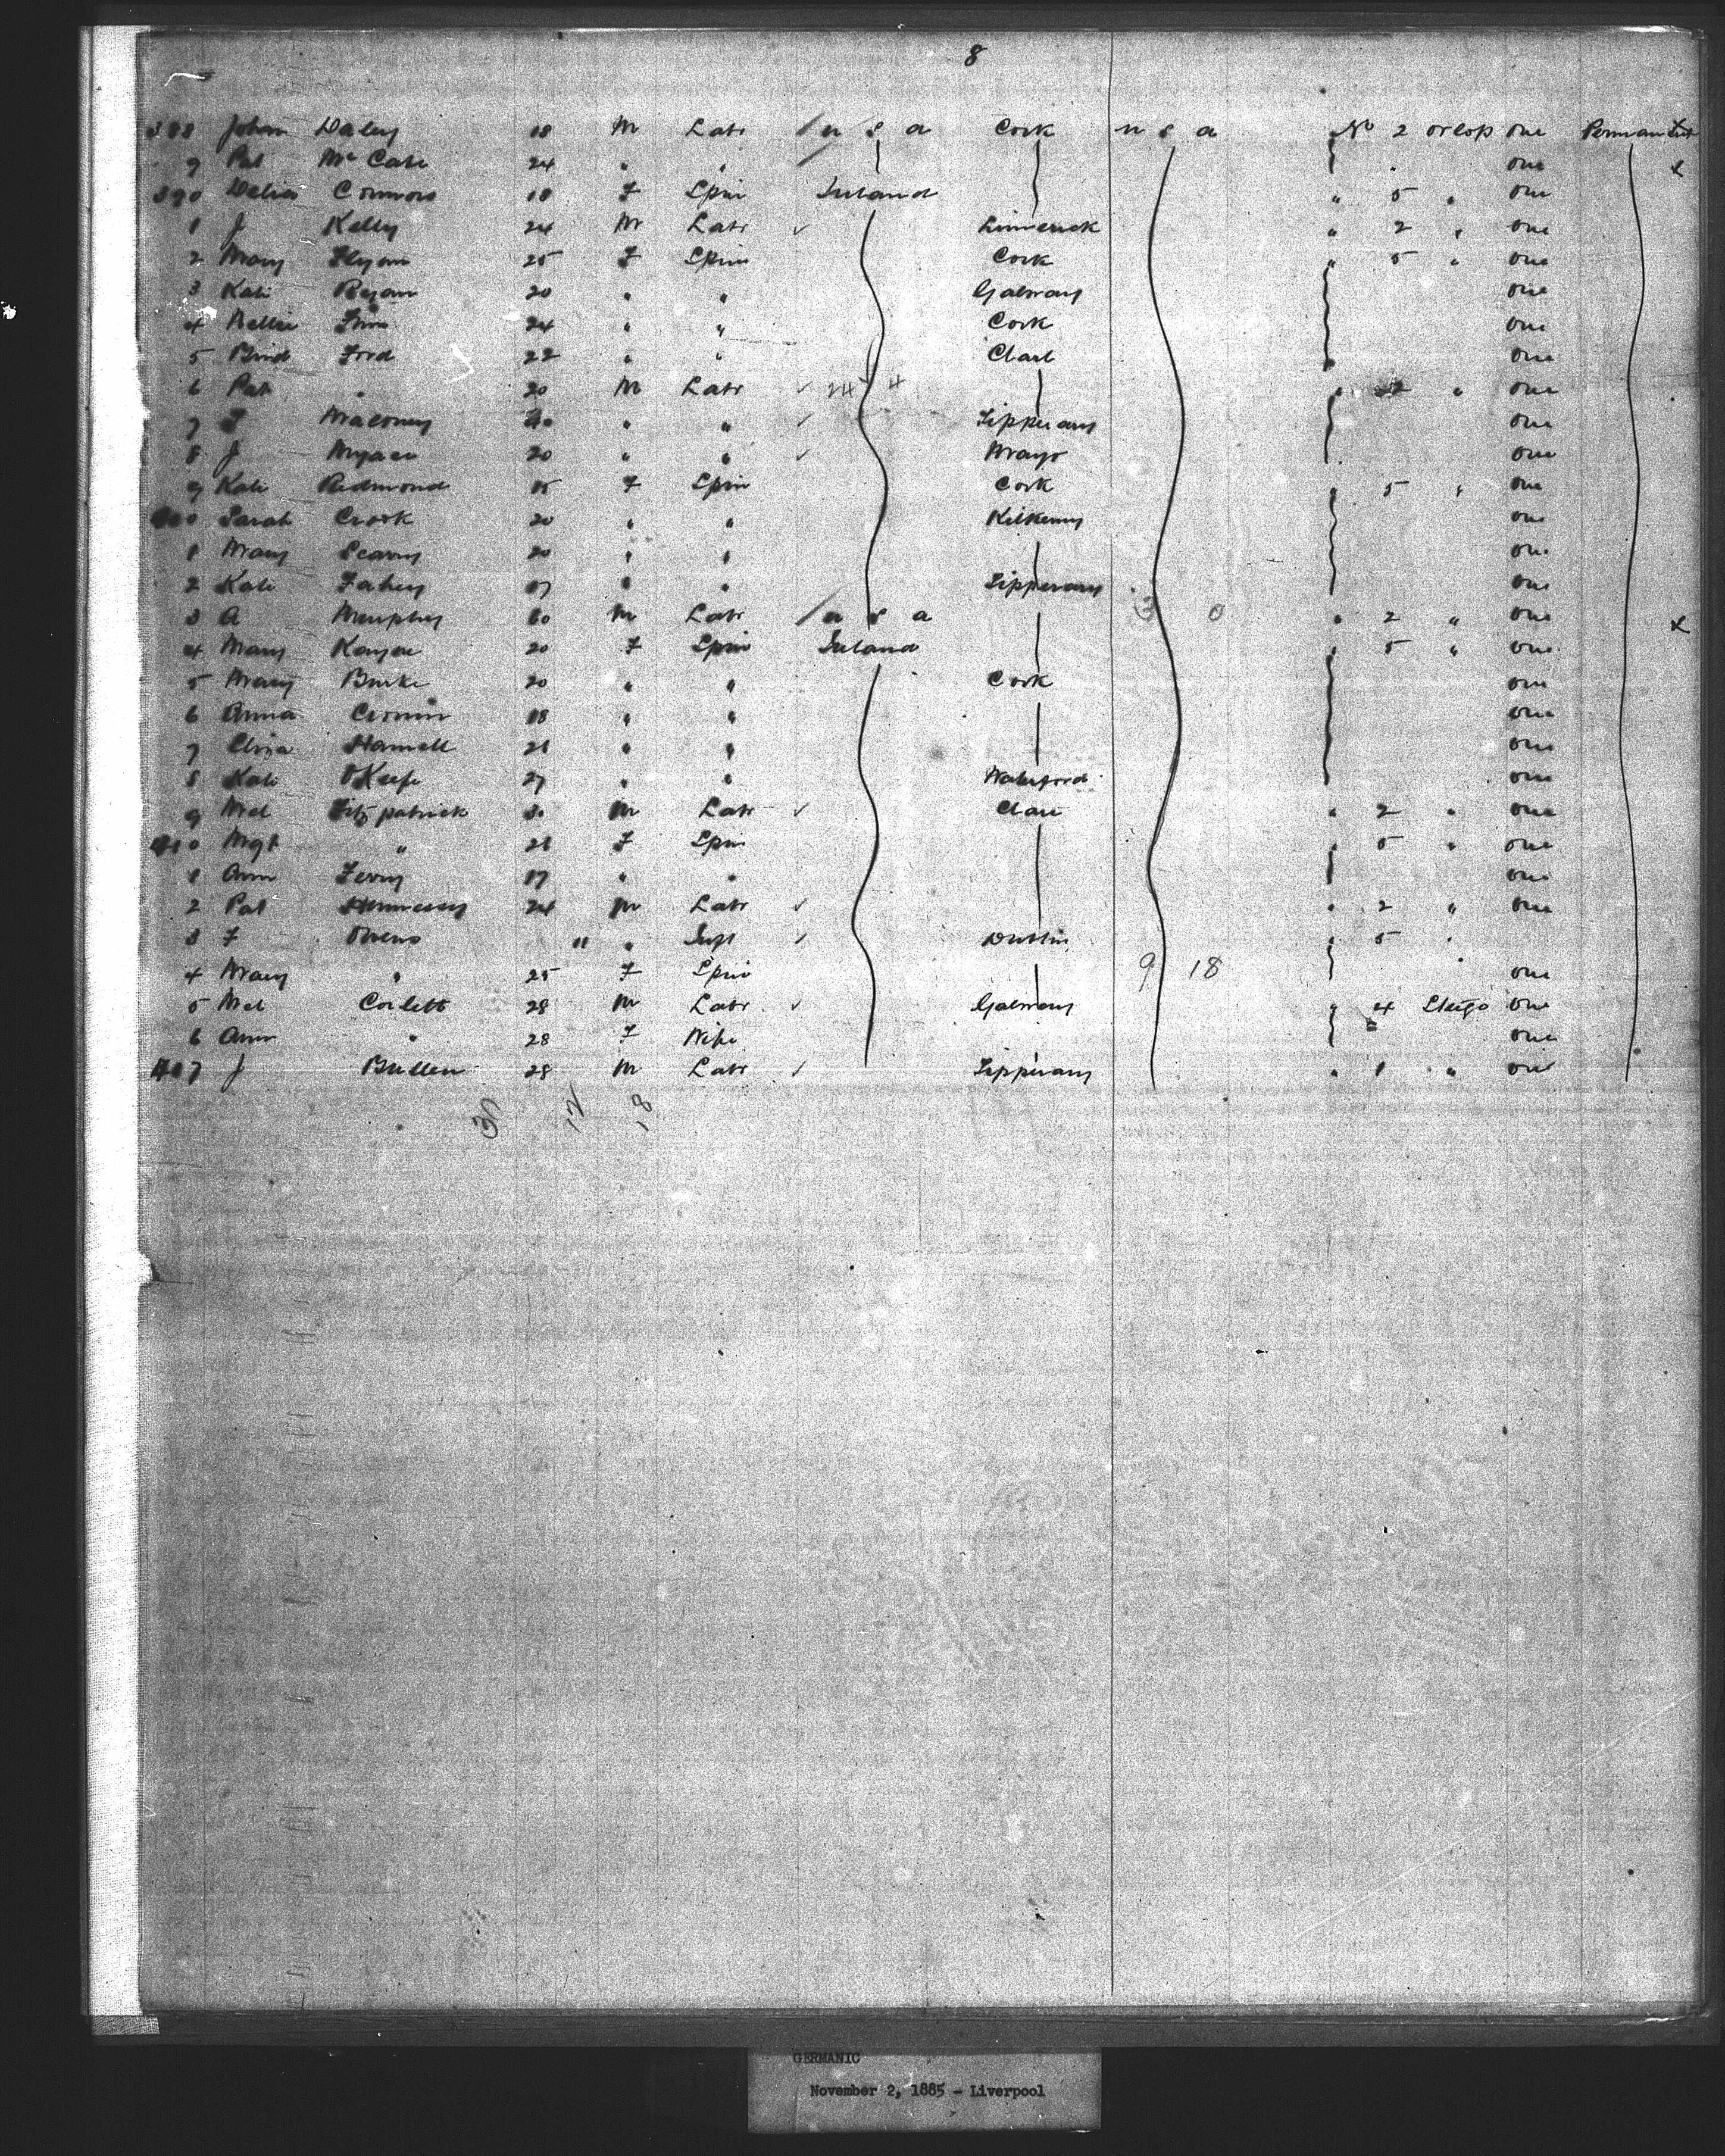 8
388 John Daley 18 M Labr / u s a Cork u s a No 2 orlop one Permanent
9 Pat McCabe 24 " " / " one x
390 Delia Connors 18 F Spin Ireland " 5 " one
1 J Kelly 24 M Labr ✓ Limerick " 2 " one
2 Mary Flynn 25 F Spin Cork " 5 " one
3 Kate Ryan 20 " " Galway one
4 Nellie 24 " " Cork one
5 Brid Ford 22 " " Clare one
6 Pat " 20 M Labr ✓ 24 4 " 2 " one
7 Maloney " " ✓ Tipperary one
8 J 20 " " ✓ Mayo one
9 Kate Redmond 15 F Spin Cork " 5 " one
400 Sarah Crook 20 " " Kilkenny one
1 Mary Searry 20 " " one
2 Kate Fahey 17 " " Tipperary one
3 A Murphy 60 M Labr / u s a 3 0 " 2 " one x
4 Mary 20 F Spin Ireland " 5 " one
5 Mary Burke 20 " " Cork one
6 Anna Cronin 18 " " one
7 Eliza 21 " " one
8 Kate OKeefe 27 " " Waterford one
9 Mcl Fitzpatrick M Labr ✓ Clare " 2 " one
410 Mgt " 21 F Spin " 5 " one
1 Ann 17 " " one
2 Pat Hennessy 24 M Labr ✓ " 2 " one
3 F Owens " " Inft ✓ Dublin " 5 "
4 Mary " 25 F Spin 9 18 " one
5 Mcl Corlett 28 M Labr ✓ Galway " 4 Steige one
6 Ann " 28 F Wife " one
417 J Bullen 28 M Labr ✓ Tipperary " 1 " one
30 12 18
GERMANIC
November 2, 1885 - Liverpool